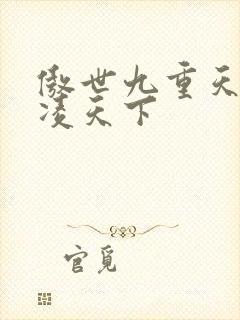 傲世九重天
凌天下
官觅